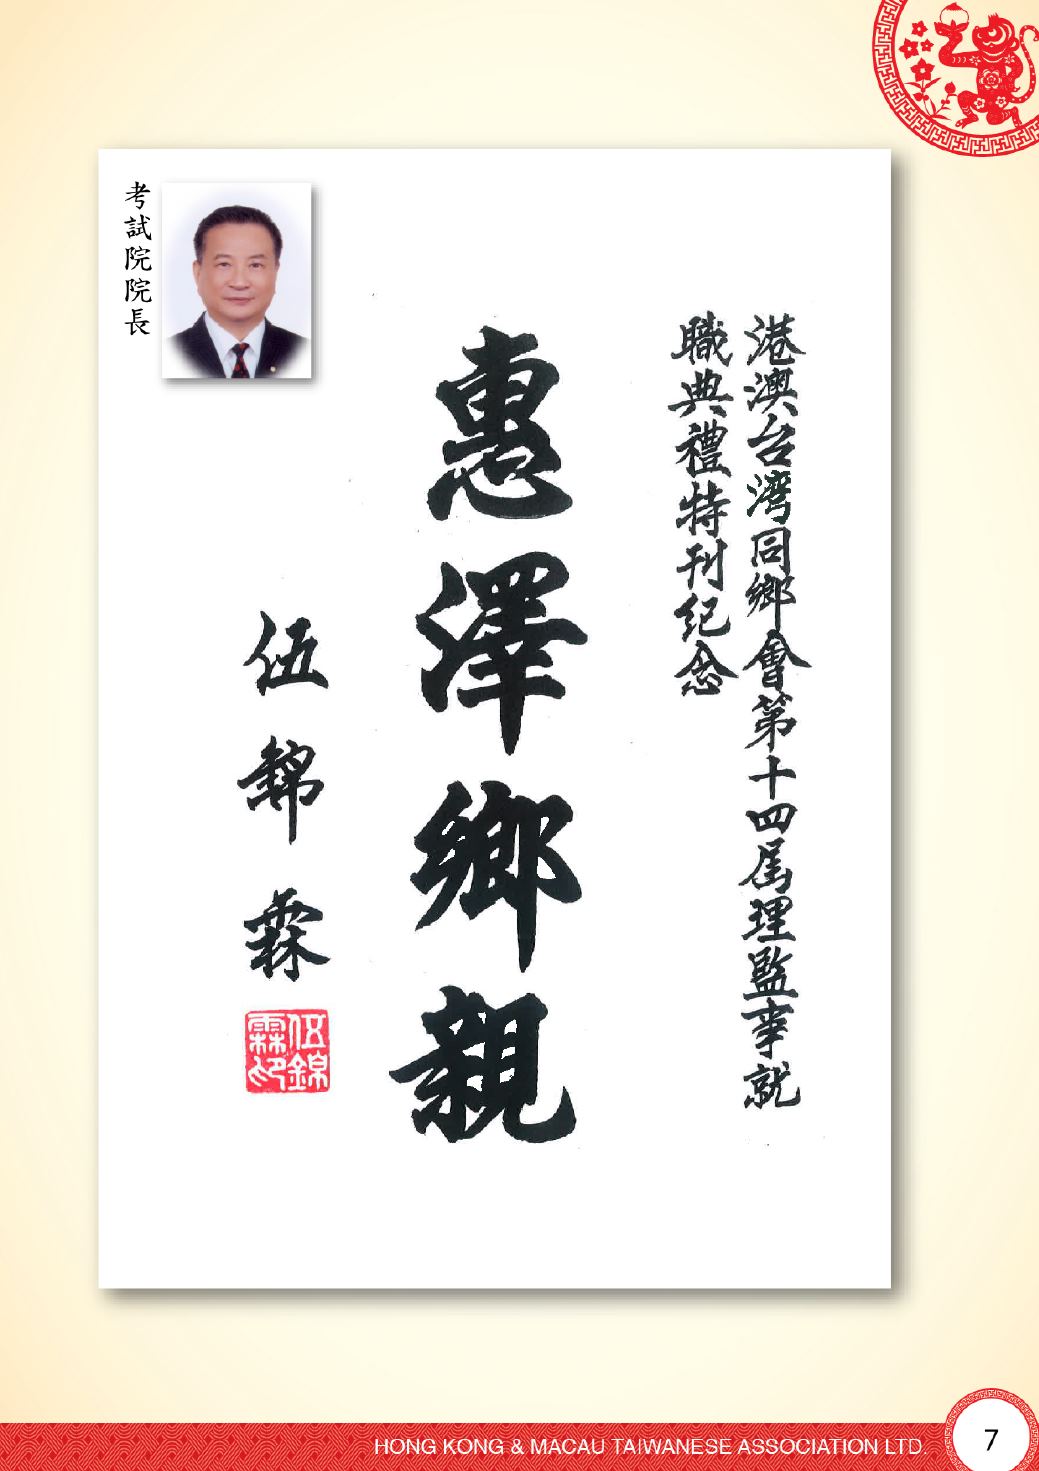 考試院院長
港澳台湾同鄉會第十四屆理監事就
職典禮特刊纪念
惠澤鄉親
伍錦霖
伍錦
霖印
HONG KONG & MACAU TAIWANESE ASSOCIATION LTD.
7